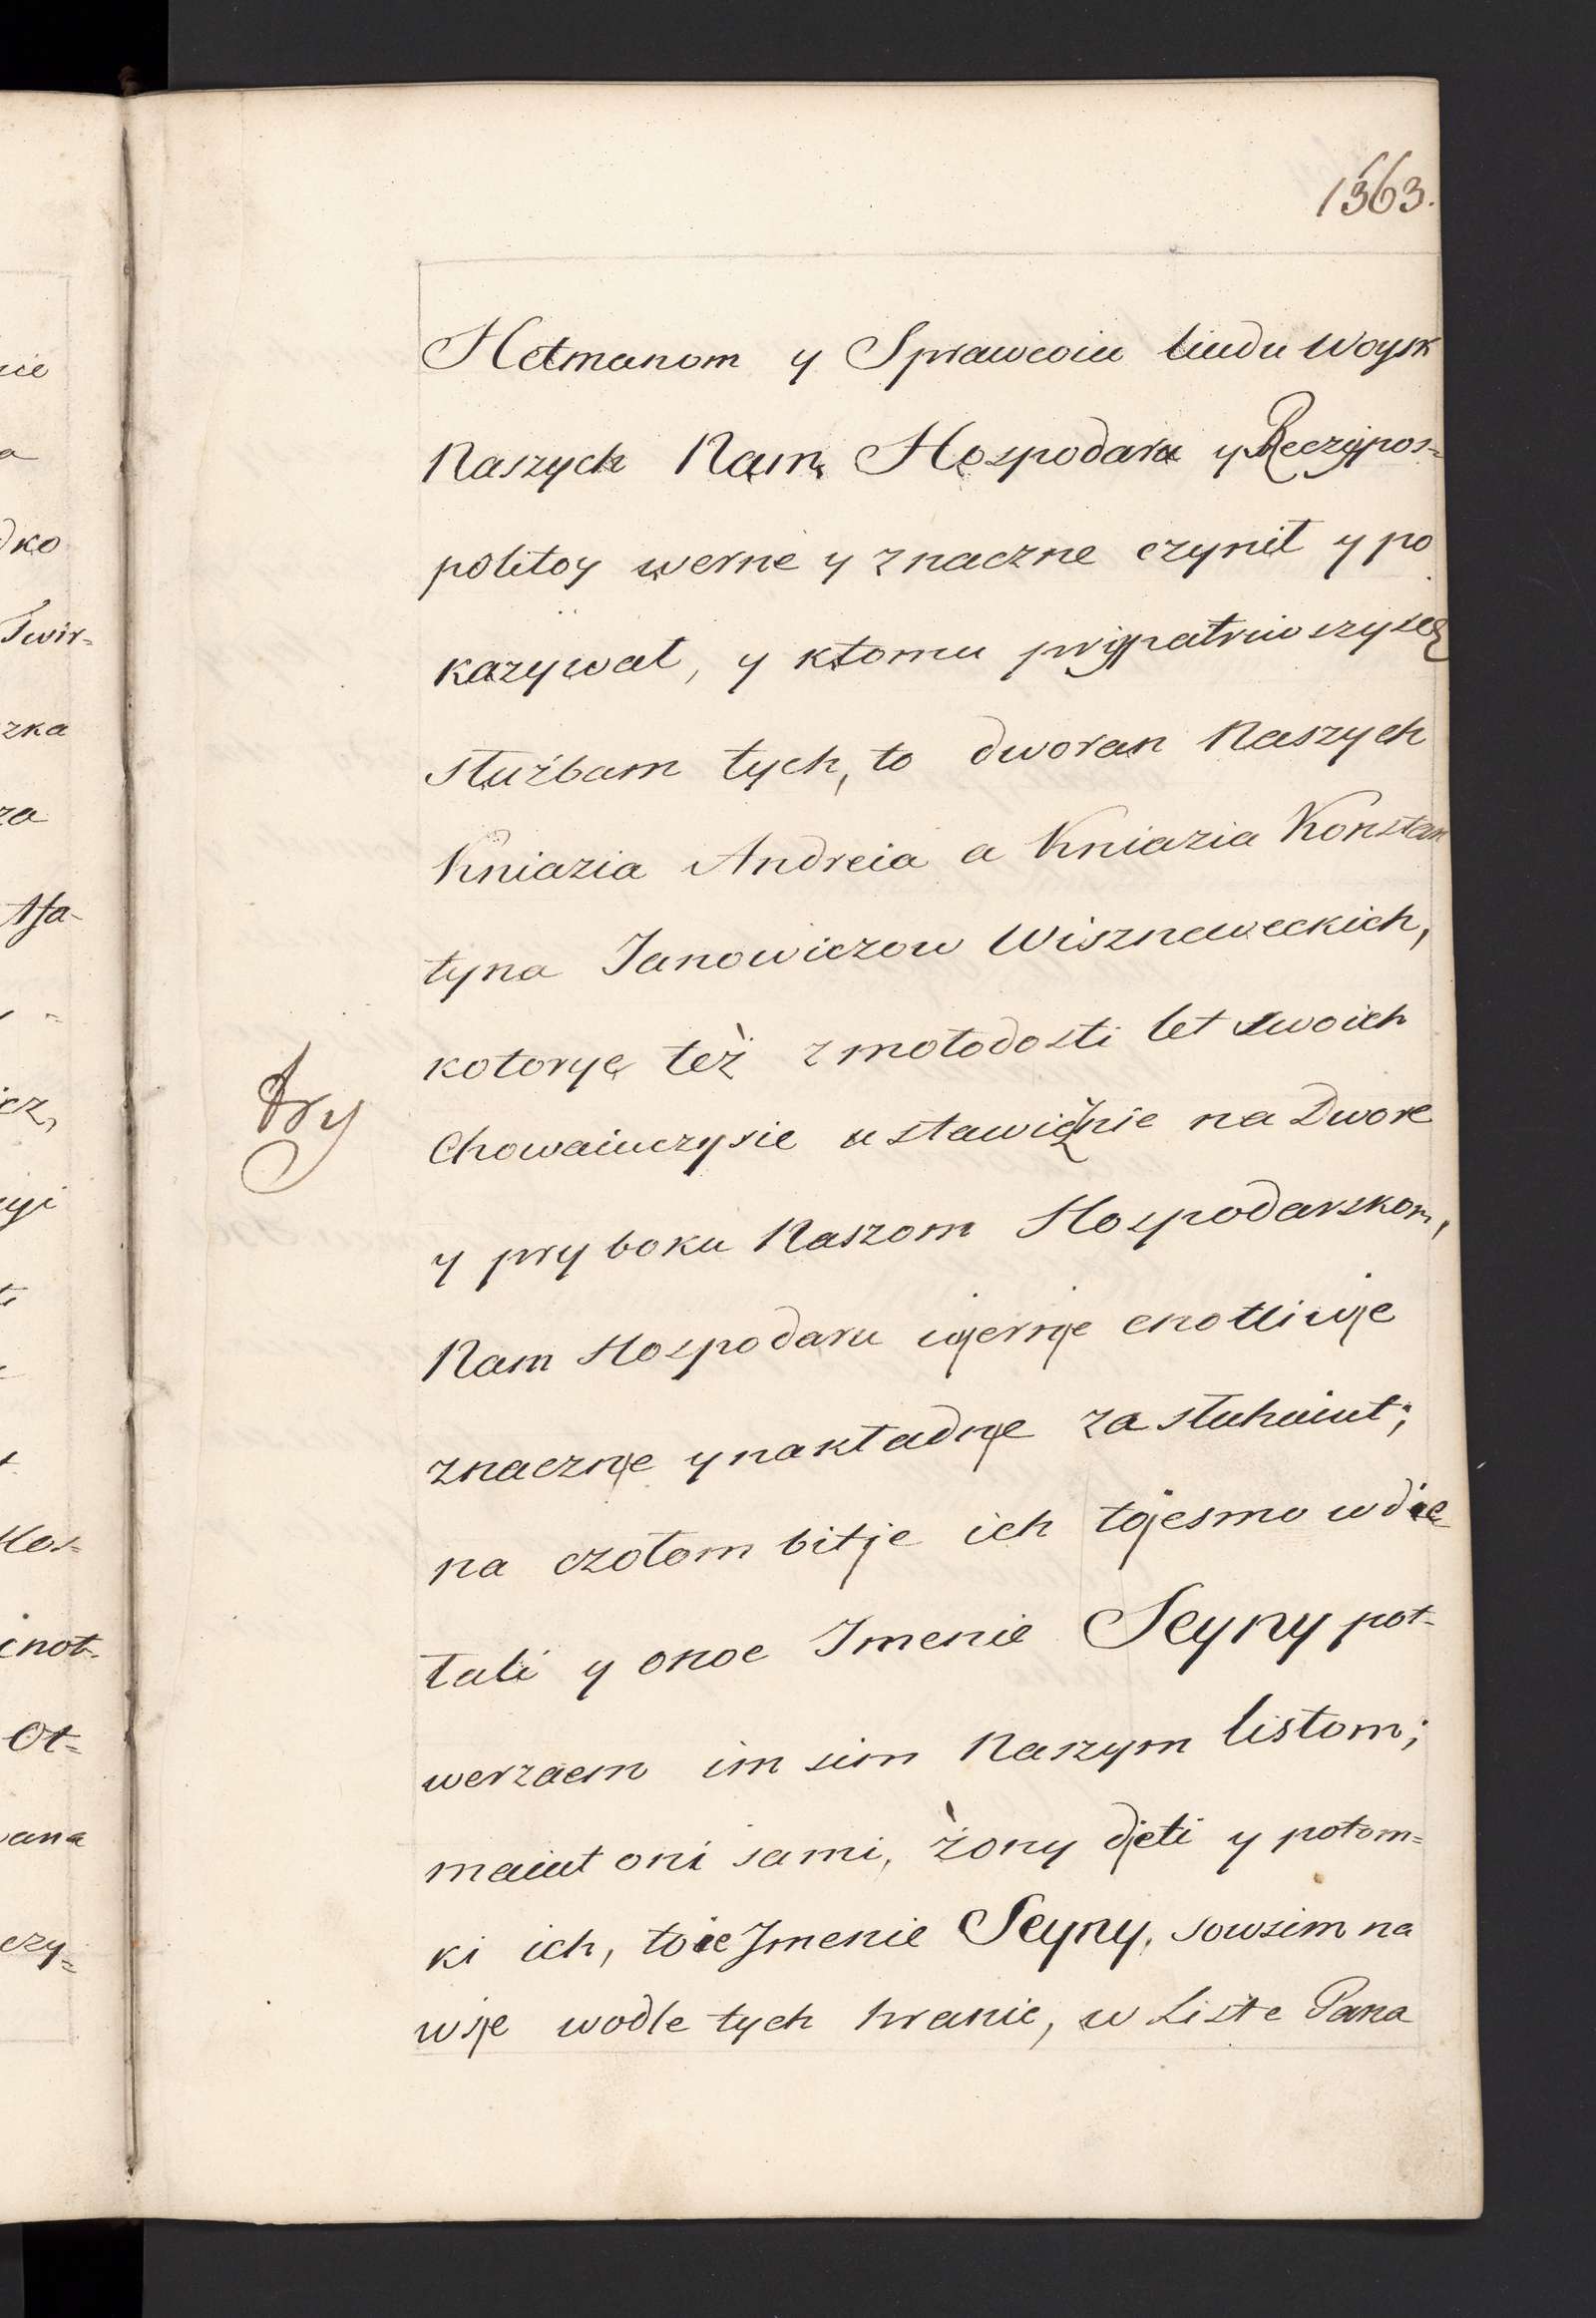 1363.
Hetmanom y Sprawcoiu liudu Woysk
Naszych Nam Hospodaru y Reczypos=
politoy werne y znaczne czynił y po
kazywał, y ktomu prypatriwszyse
służbam tych, to dworan Naszych
Kniazia Andreia a Kniazia Konstan
tyna Janowiczow Wiszneweckich,
kotorye też z mołodosti let swoich
try
Chowaiuczysie ustawicznie na Dwore
y pry boku Naszom Hospodarskom,
Nam Hospodaru wjernje cnotliwje
znacznje y nakładnje zasłuhaiut;
na czołom bitje ich tojesmo wdie
łali y onoe Imenie Seyny pot-
werzaem im sim Naszym listom;
maiut oni sami, żony djeti y potom=
ki ich, toie Imenie Seyny, sowsim na
wsje wodle tych hranic, w Liste Pana
nie
a
dko
Twir-
zka
za
icz,
Hos=
cnot-
Ot=
wana
czy=